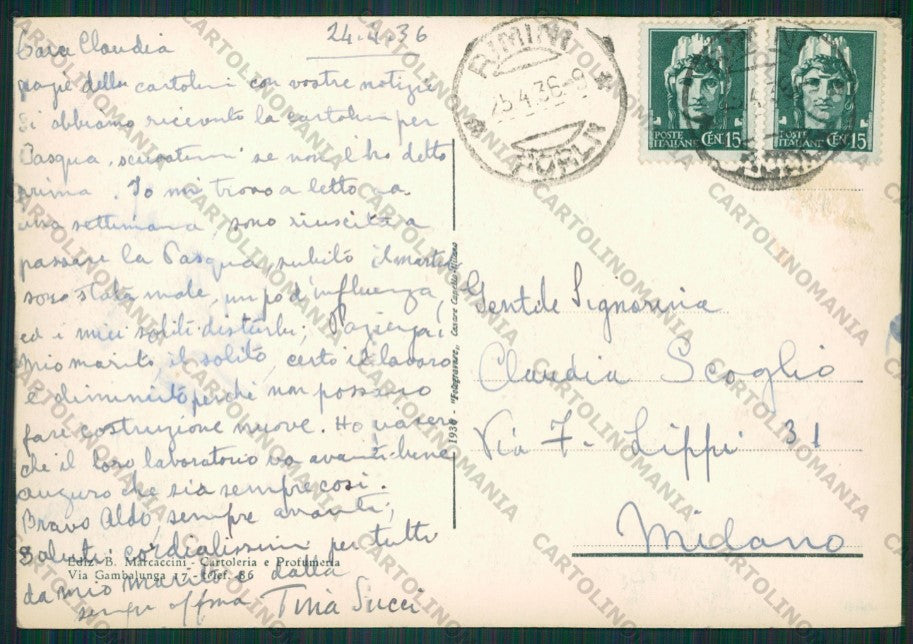 24.4.36
Cara Claudia
grazie della cartolina con vostre notizie
Si abbiamo ricevuto la cartolina per
Pasqua, scusatemi se non l'ho detto
prima. Io mi trovo a letto da
una settimana, sono riuscita a
passare la Pasqua, subito il martedì
sono stata male, un po d'influenza,
ed i miei soliti disturbi; Pazienza!
mio marito il solito, certo il lavoro
è diminuito perchè non possono
fare costruzione nuove. Ho piacere
che il loro laboratorio va avanti bene
auguro che sia sempre così.
Bravo Aldo, sempre avanti,
Saluti cordialissimi per tutti
da mio marito e dalla
sempre affma Tina Succi
Ediz. B. Marcaccini - Cartoleria e Profumeria
Via Gambalunga 17 - telef. 86
1936 - "Fotogravure,, Cesare Capello Milano
RIMINI
25.4.36-9
FORLI
POSTE ITALIANE CENT 15
POSTE ITALIANE CENT 15
Gentile Signorina
Claudia Scoglio
Via F. Lippi 31
Milano
CARTOLINOMANIA